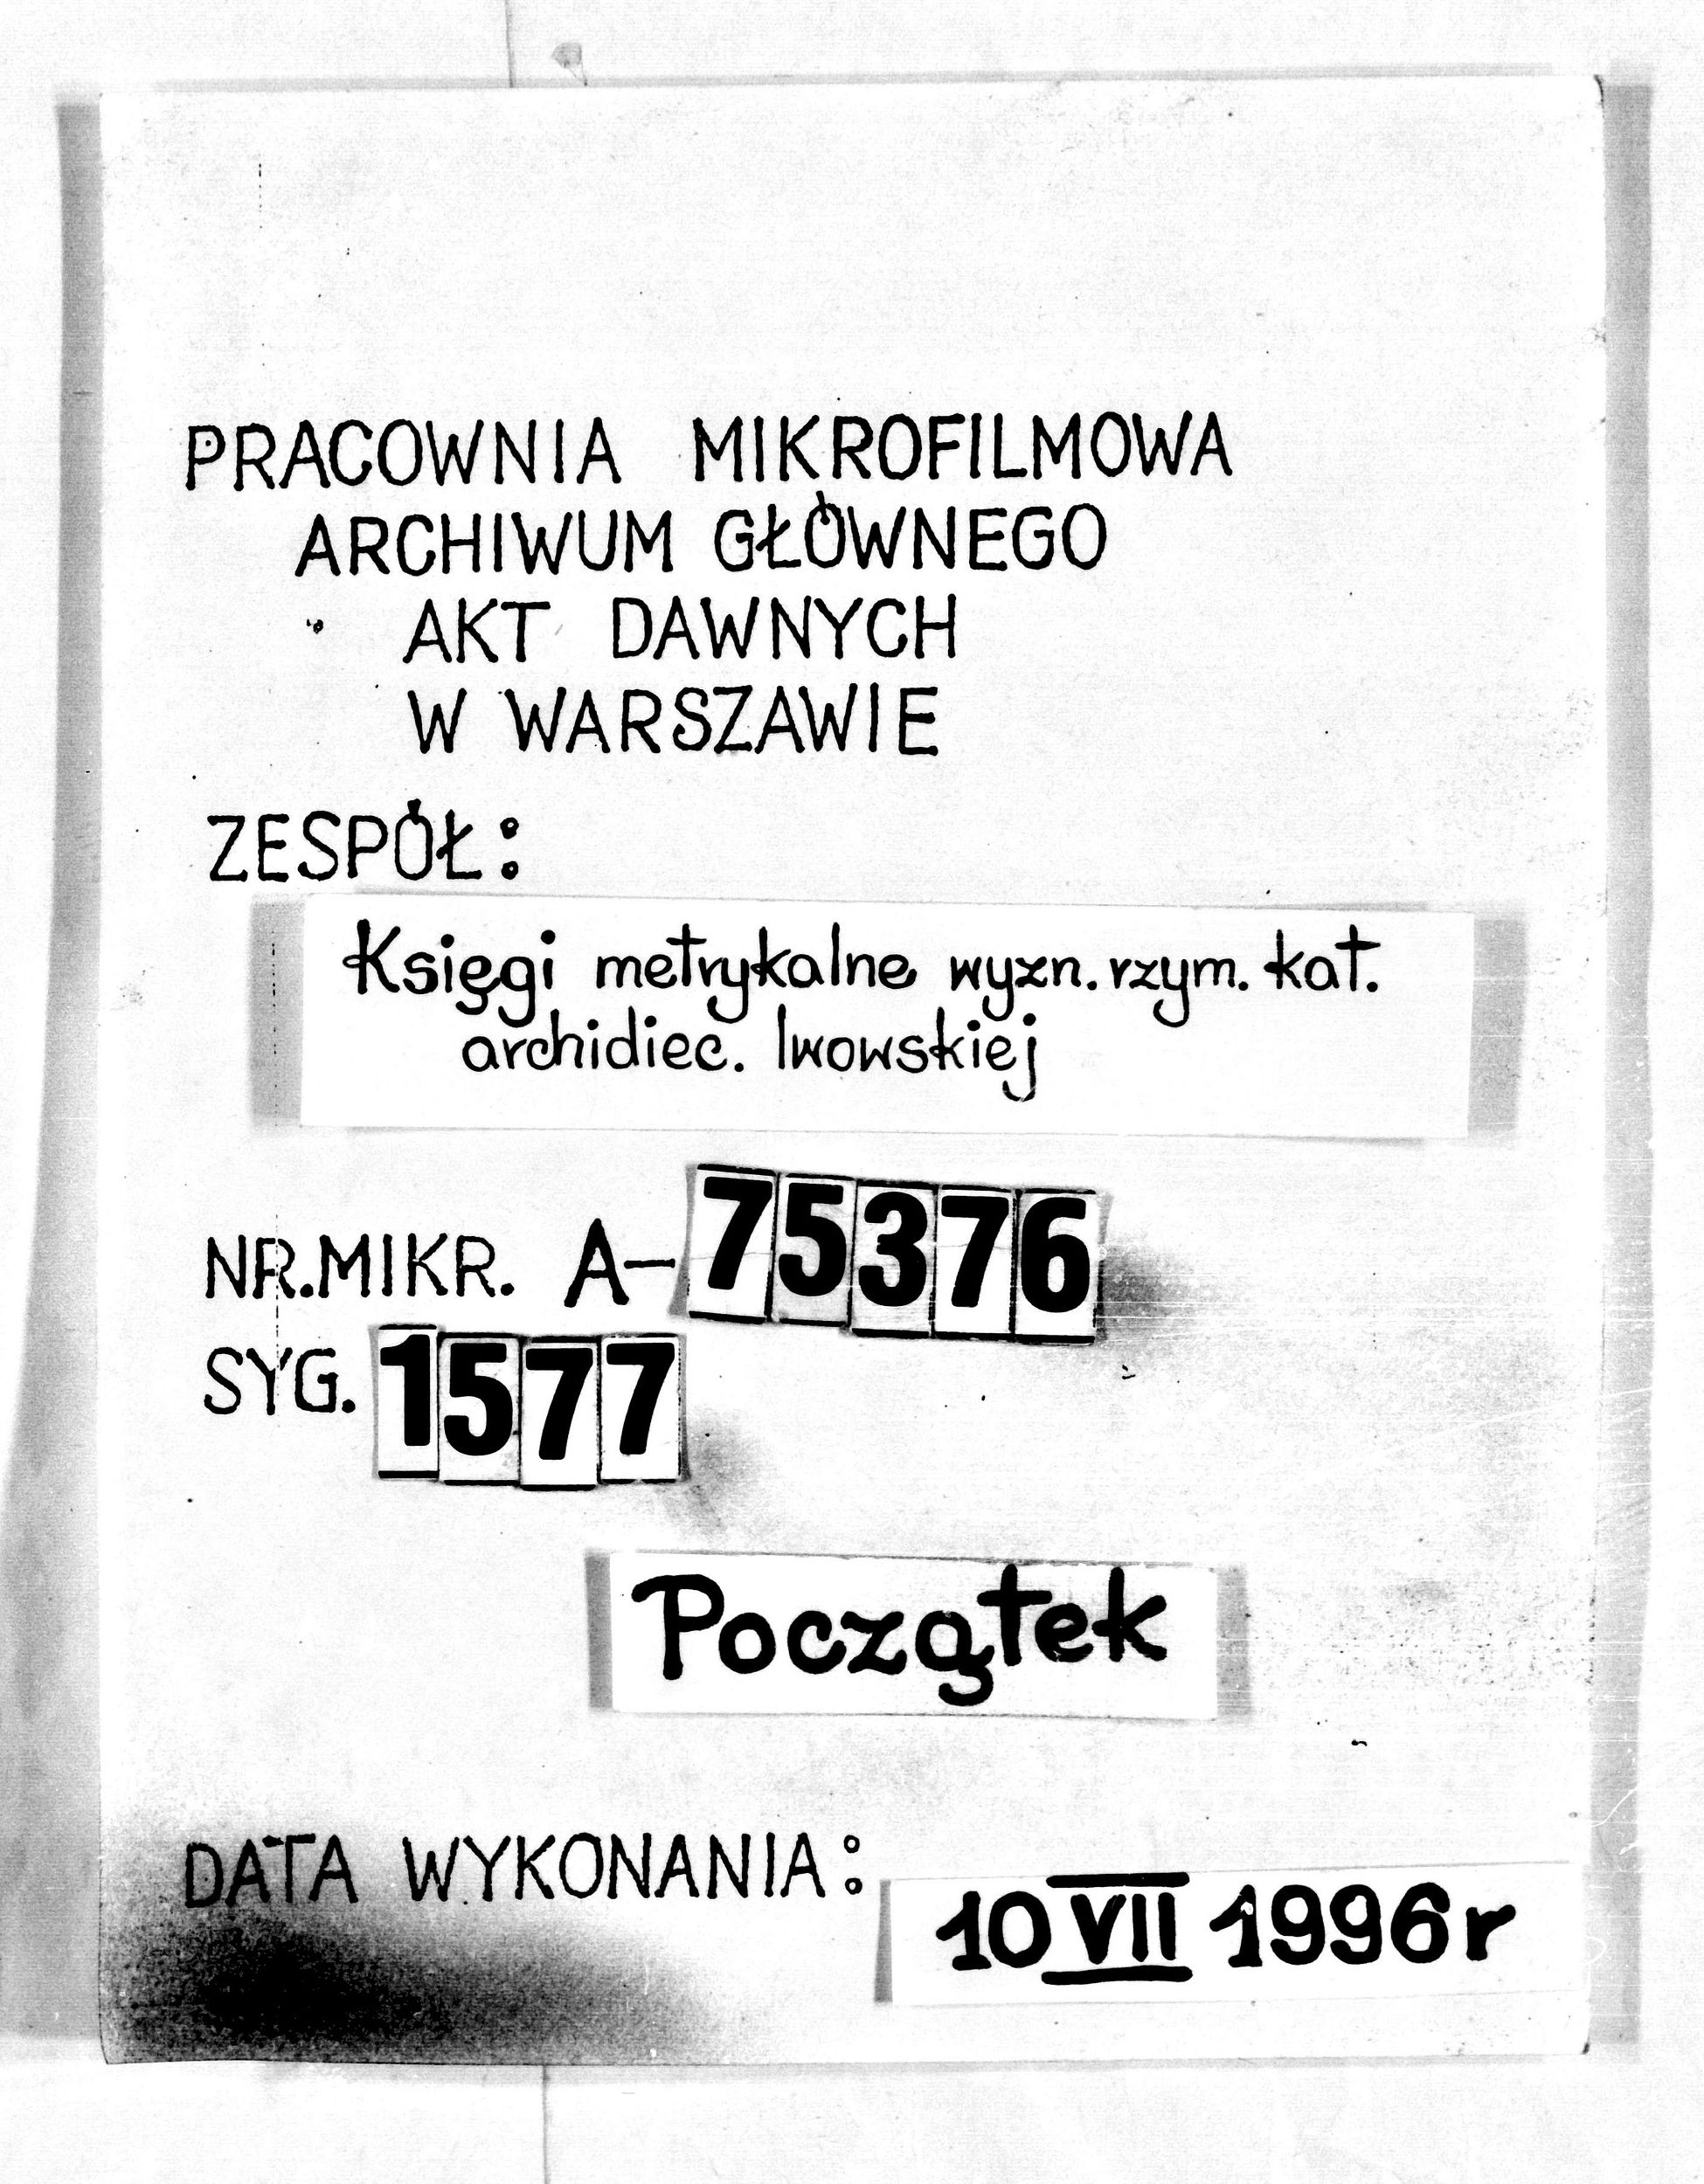 PRACOWNIA MIKROFILMOWA
ARCHIWUM GŁÓWNEGO
AKT DAWNYCH
W WARSZAWIE
ZESPÓŁ:
Księgi metrykalne wyzn. rzym. kat.
archidiec. lwowskiej
NR. MIKR. A-75376
SYG. 1577
Początek
DATA WYKONANIA: 10 VII 1996 r